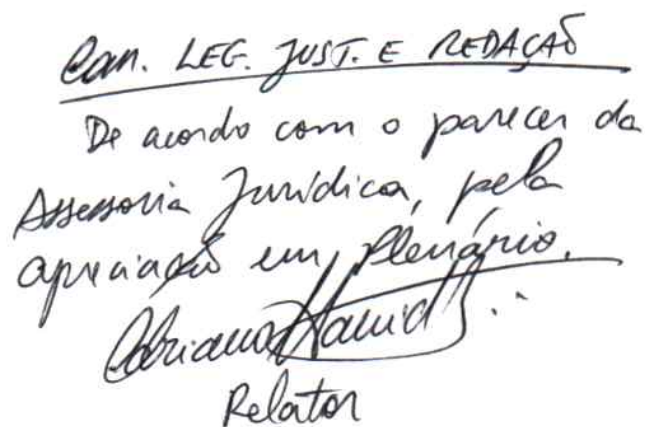 Com. LEG. JUST. E REDAÇAÕ
De acordo com o parecer da
Assessoria Jurídica, pela
apreciação em Plenário.
Relator